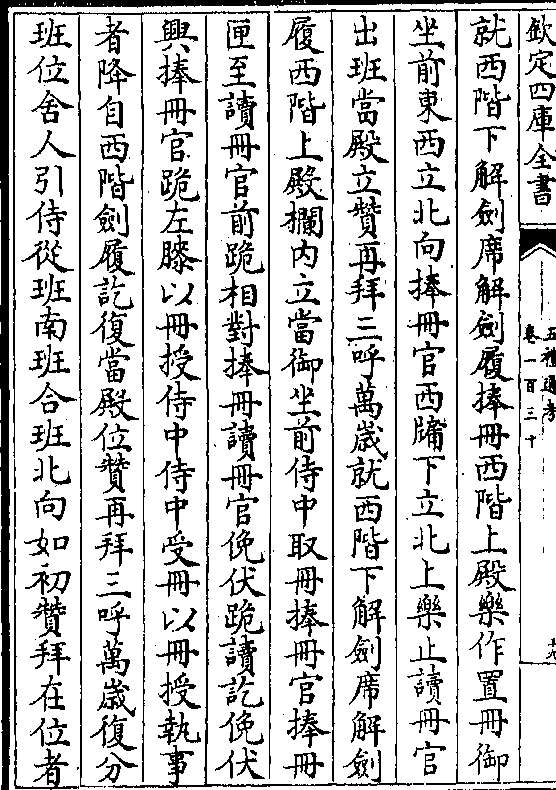 欽定四庫全書
五禮通考
卷一百三十
十九
就西階下解劍席解劍履捧冊西階上殿樂作置冊御
坐前東西立北向捧冊官西牗下立北上樂止讀冊官
出班當殿立贊再拜三呼萬歲就西階下解劍席解劍
履西階上殿欄內立當御坐前侍中取冊捧冊官捧冊
匣至讀冊官前跪相對捧冊讀冊官俛伏跪讀訖俛伏
興捧冊官跪左膝以冊授侍中侍中受冊以冊授執事
者降自西階劍履訖復當殿位贊再拜三呼萬歲復分
班位舍人引侍從班南班合班北向如初贊拜在位者